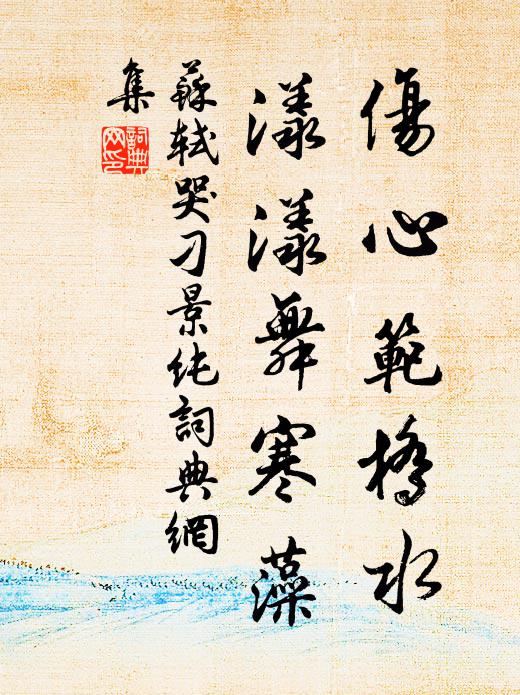 傷心範橋水
漾漾舞寒藻
蘇軾哭刁景純詞典網
集
詞典
网印